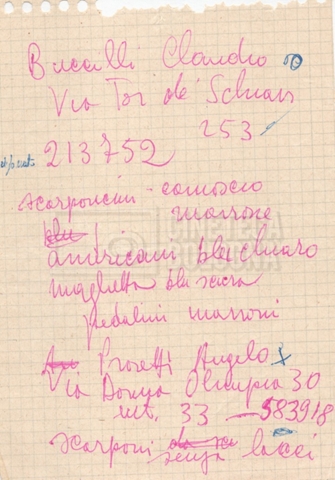 Buccelli Claudio
Via Tor de' Schiavi
253
213752
scarponcini - camoscio
marrone
blu
americani blu chiaro
maglietta blu scura
pedalini marroni
Prosetti Angelo
Via Donna Olimpia 30
int. 33 - 583918
scarponi
senza lacci
CINETECA
BOLOGNA